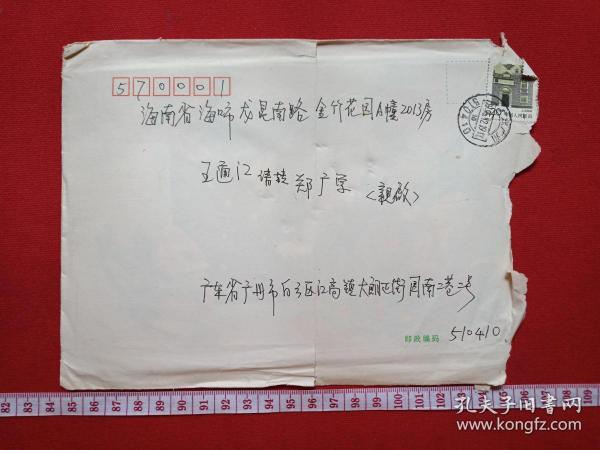 570001
海南省海口市龙昆南路金竹花园A幢2013房
王通江 请转 郑广学 <亲启>
广东省广州市白云区江高镇大朗正街园南二巷二号
邮政编码 510410
82 83 84 85 86 87 88 89 90 91 92 93 94 95 96 97 98 99 100 101 102 103 104
孔夫子旧书网
www.kongfz.com